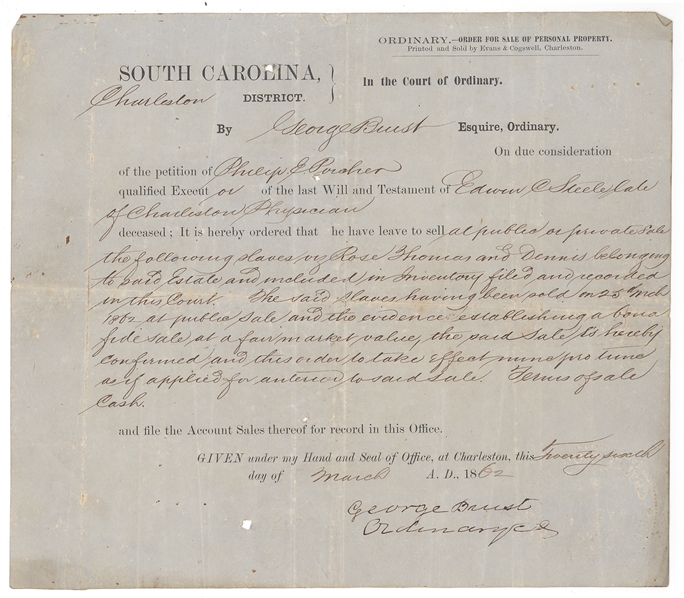 ORDINARY.—ORDER FOR SALE OF PERSONAL PROPERTY.
Printed and Sold by Evans & Cogswell, Charleston.
SOUTH CAROLINA,
Charleston DISTRICT.
In the Court of Ordinary.
By George Buist Esquire, Ordinary.
On due consideration
of the petition of Philip E Porcher
qualified Execut or of the last Will and Testament of Edwin C Steele, late
of Charleston Physician
deceased; It is hereby ordered that he have leave to sell at public or private Sale
the following slaves viz Rose Thomas and Dennis belonging
to said Estate and included in Inventory filed and recorded
in this Court. The said slaves having been sold on 25th Mch
1862 at public sale and the evidence establishing a bona
fide sale, at a fair market value, the said Sale is hereby
confirmed and this order to take effect nunc pro tunc
as if applied for anterior to said Sale. Terms of sale
Cash.
and file the Account Sales thereof for record in this Office.
GIVEN under my Hand and Seal of Office, at Charleston, this Twenty sixth
day of March A. D., 1862
George Buist
Ordinary